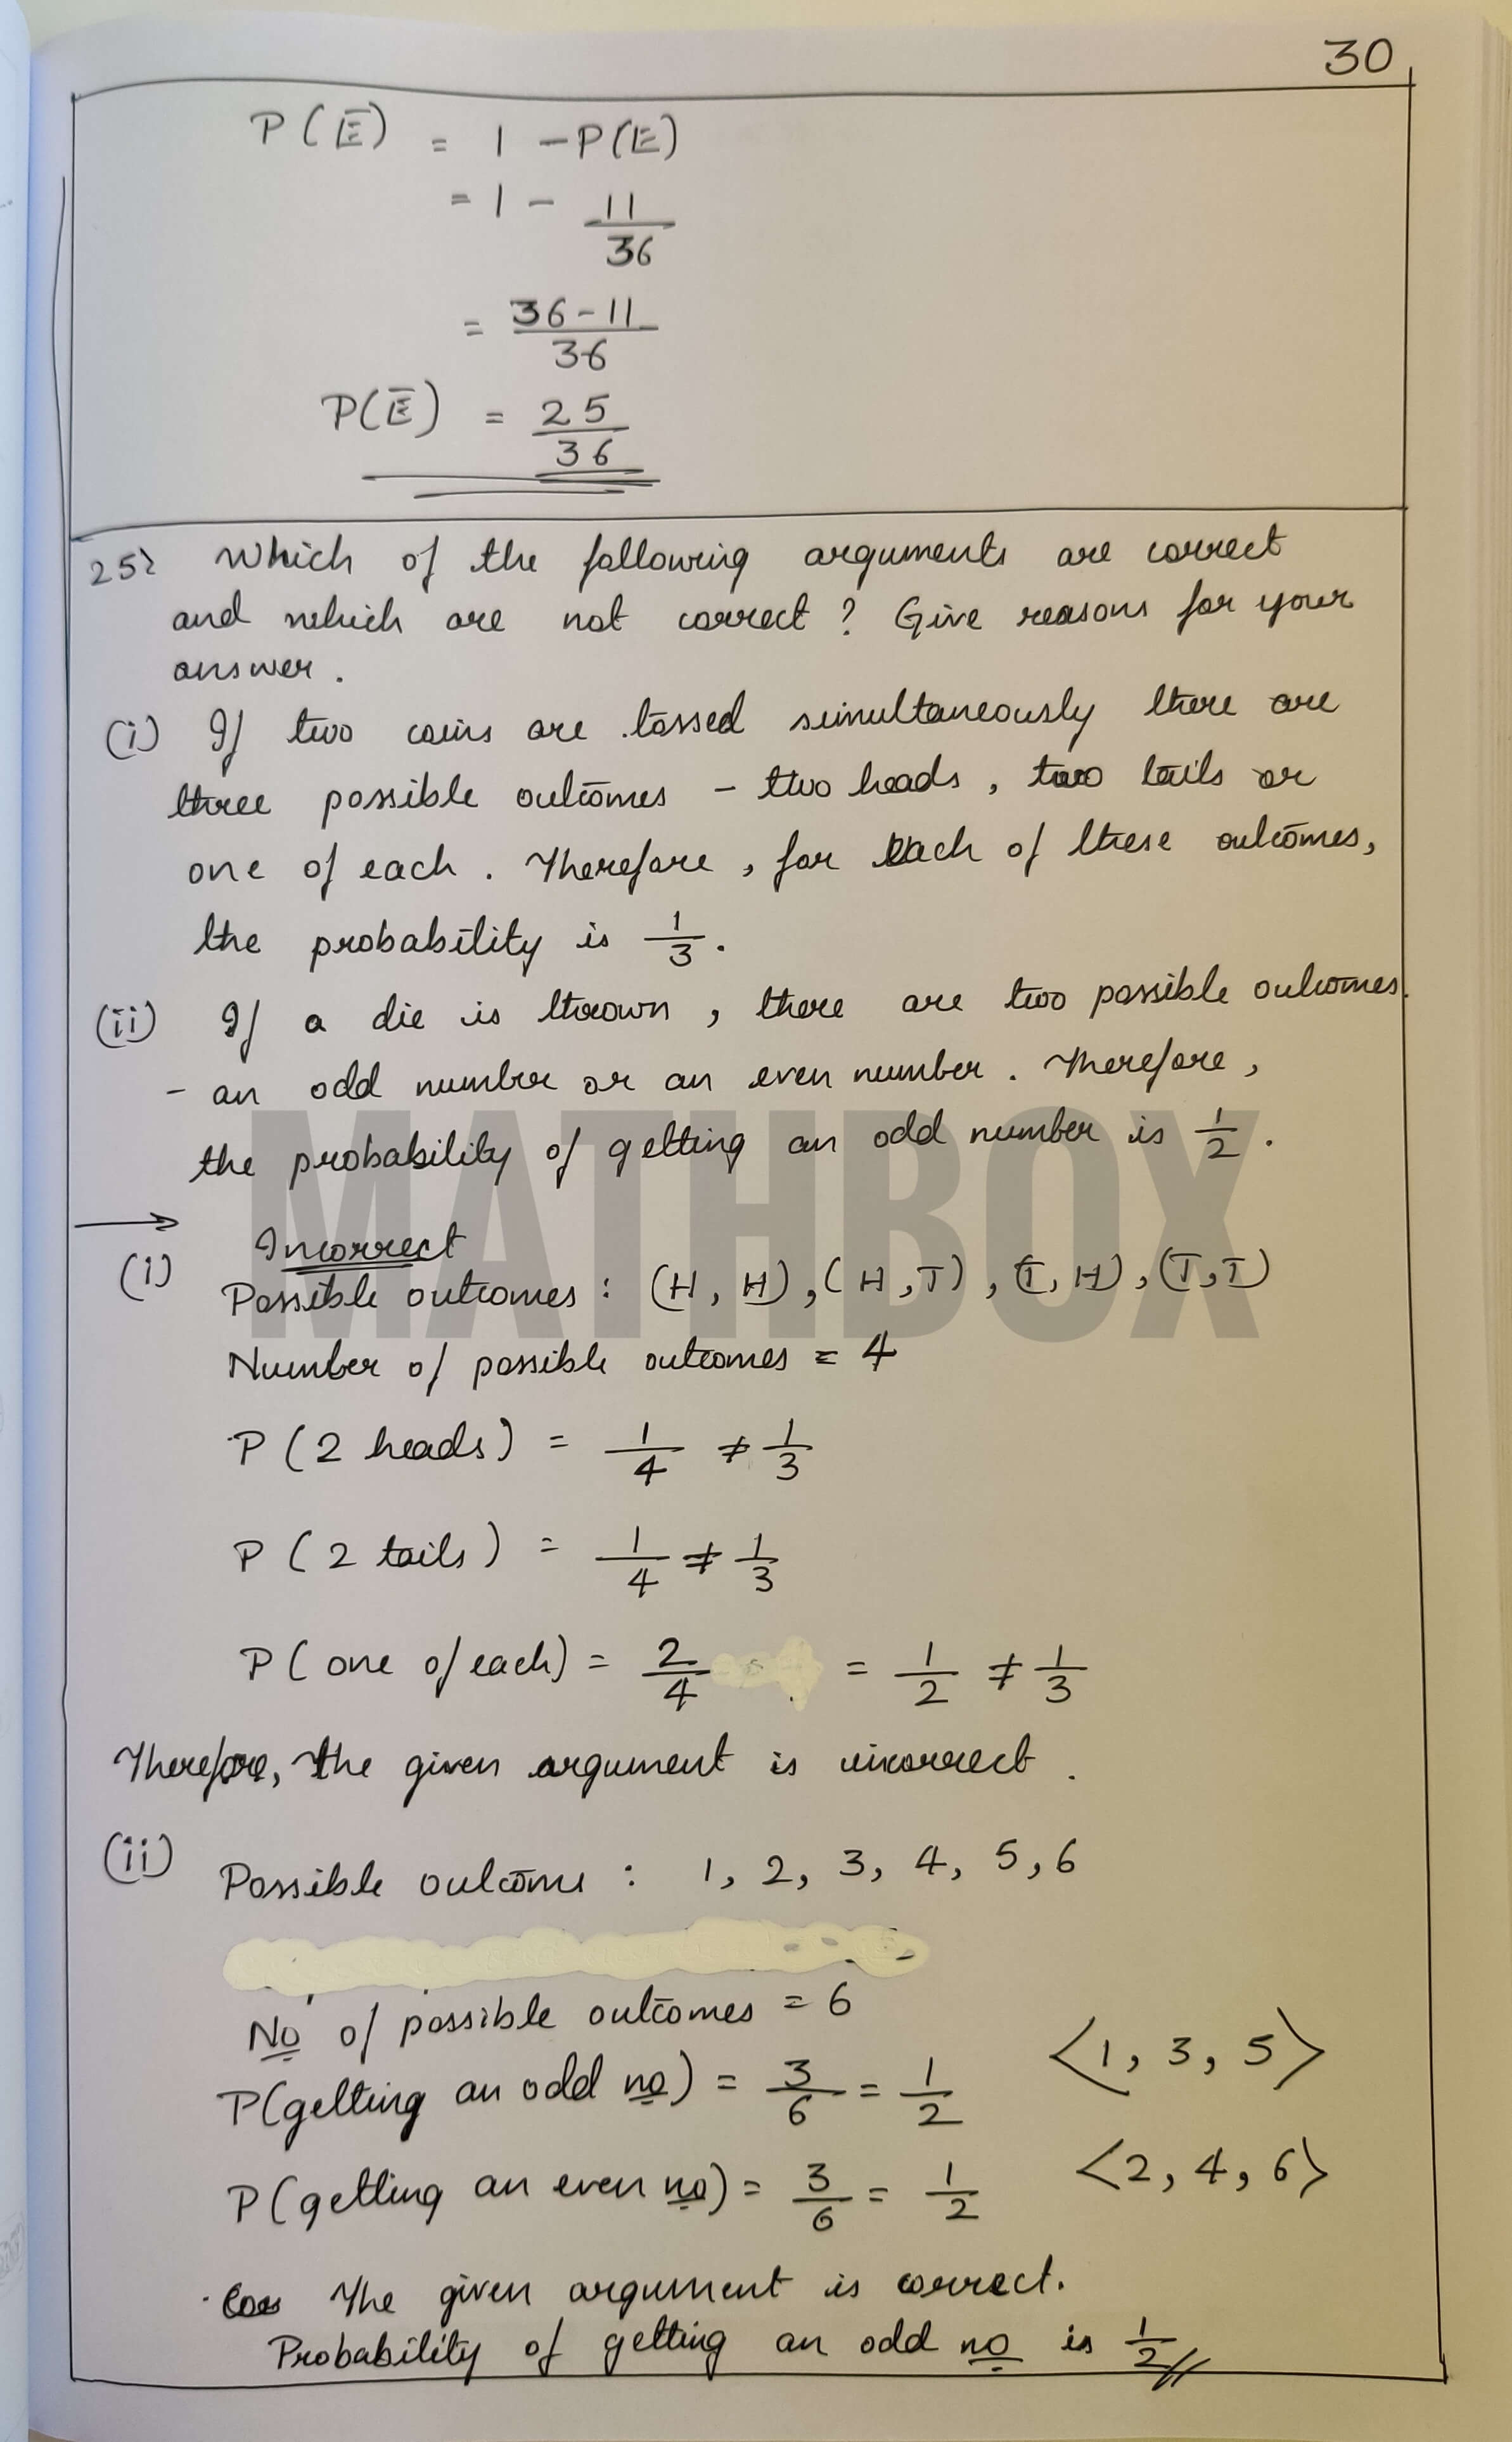 30
P(Ē) = 1 - P(E)
= 1 - 11/36
= 36-11/36
P(Ē) = 25/36
25) Which of the following arguments are correct
and which are not correct? Give reasons for your
answer.
(i) If two coins are tossed simultaneously there are
three possible outcomes - two heads, two tails or
one of each. Therefore, for each of these outcomes,
the probability is 1/3.
(ii) If a die is thrown, there are two possible outcomes.
- an odd number or an even number. Therefore,
the probability of getting an odd number is 1/2.
MATHBOX
→
(i) Incorrect
Possible outcomes : (H, H), (H, T), (T, H), (T, T)
Number of possible outcomes = 4
P(2 heads) = 1/4 ≠ 1/3
P(2 tails) = 1/4 ≠ 1/3
P(one of each) = 2/4 = 1/2 ≠ 1/3
Therefore, the given argument is incorrect.
(ii) Possible outcome : 1, 2, 3, 4, 5, 6
No of possible outcomes = 6
P(getting an odd no) = 3/6 = 1/2 <1, 3, 5>
P(getting an even no) = 3/6 = 1/2 <2, 4, 6>
The given argument is correct.
Probability of getting an odd no is 1/2//